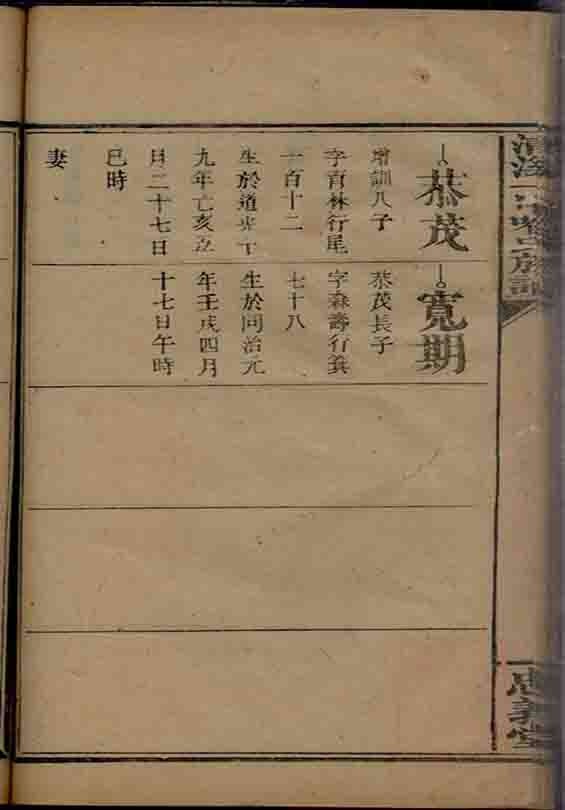 恭茂
增訓八子
字育林行尾
一百十二
生於道光十
九年己亥五
月二十七日
巳時
妻
寬期
恭茂長子
字森壽行箕
七十八
生於同治元
年壬戌四月
十七日午時
忠義堂